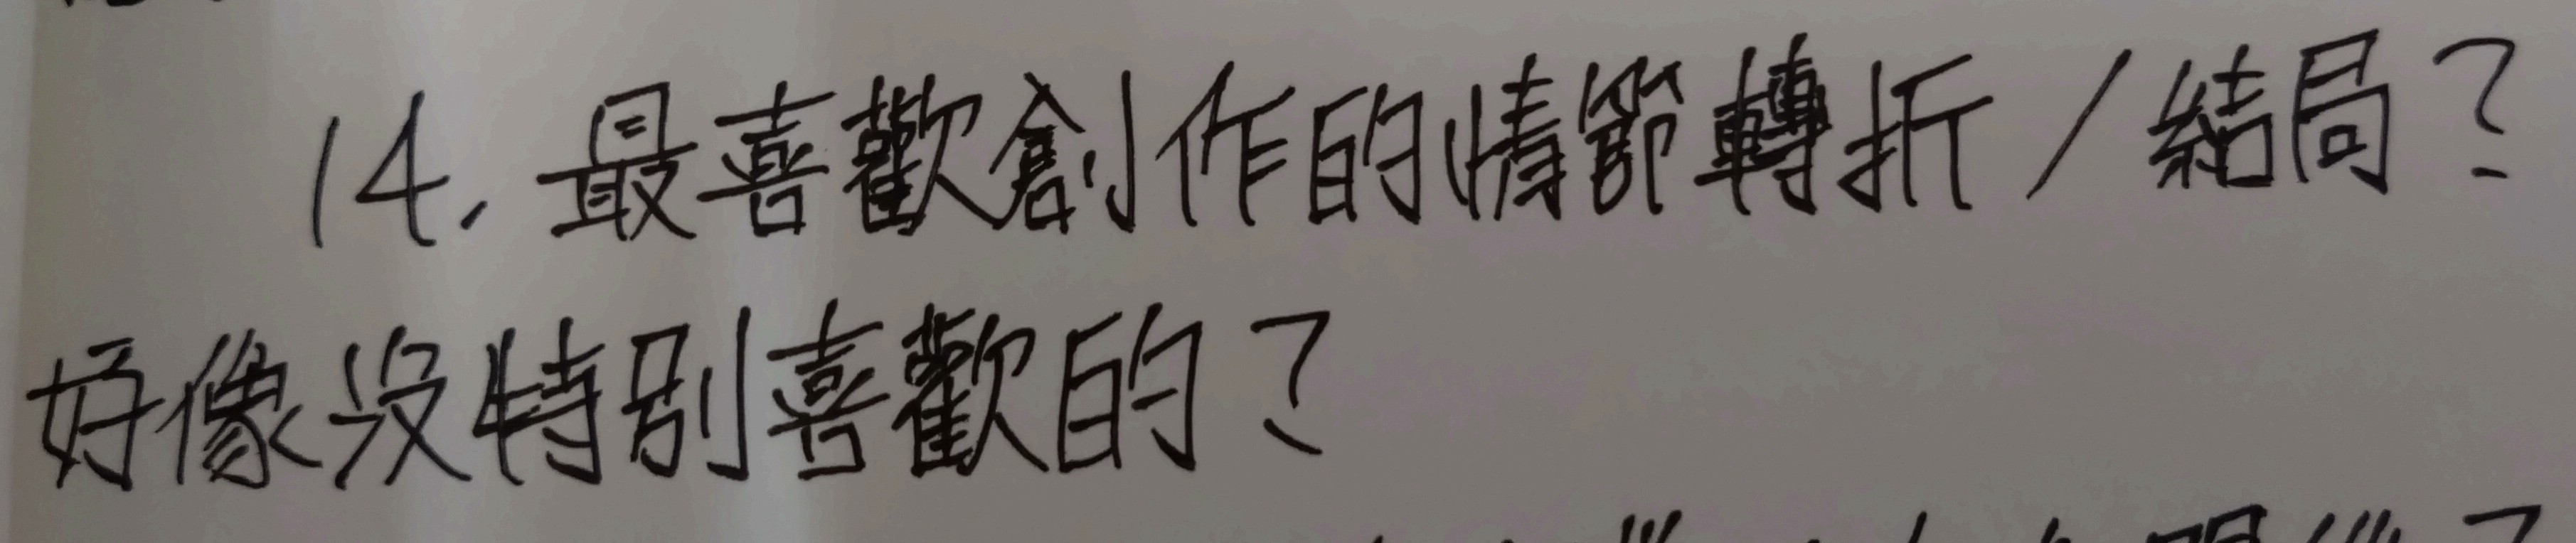 14. 最喜歡創作的情節轉折／結局？
好像沒特別喜歡的？